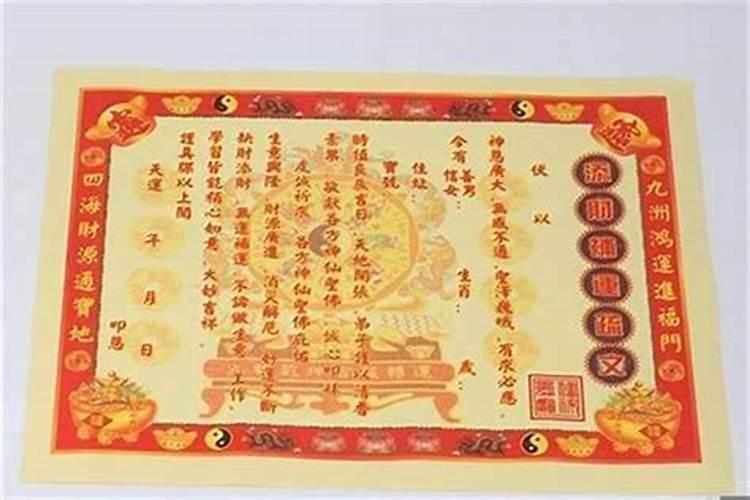 九洲鴻運進福門
添財補運疏文
伏以
神恩廣大 無感不通 聖澤巍峨 有求必應
今有善男信女： 生肖： 歲：
住址：
寶號
時值良辰吉日 天地開張 弟子僅以清香
素果 敬獻各方神仙聖佛 誠心叩拜
虔誠祈求 各方神仙聖佛庇佑
生意興隆 財源廣進 消災解厄 好運不斷
缺財添財 無運補運 不論做生意、工作、
學習皆能稱心如意 大妙吉祥
謹具疏以上聞
天運 年 月 日 叩恩
四海財源通寶地